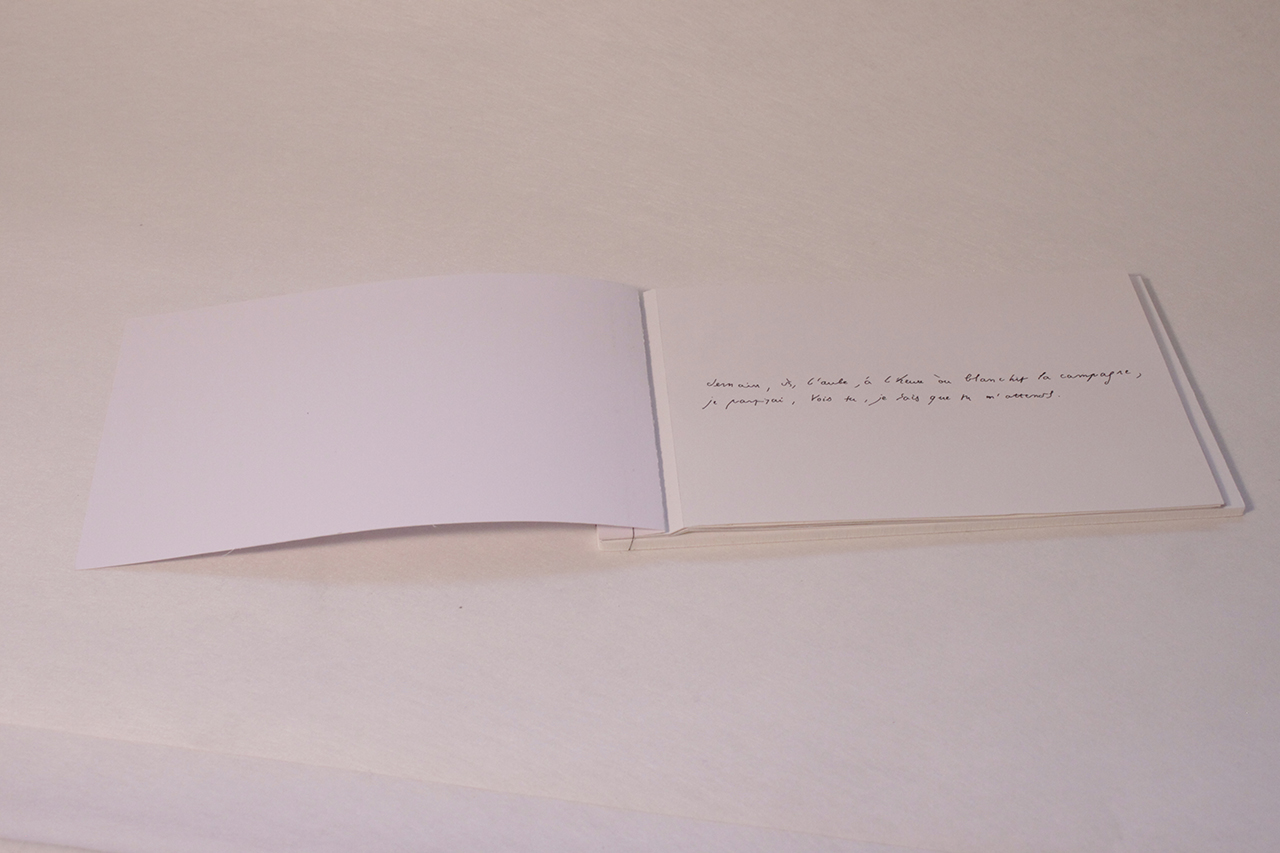 demain, ds, l'aube, à l'heure où blanchit la campagne,
je partirai, Vois tu, je sais que tu m'attends.